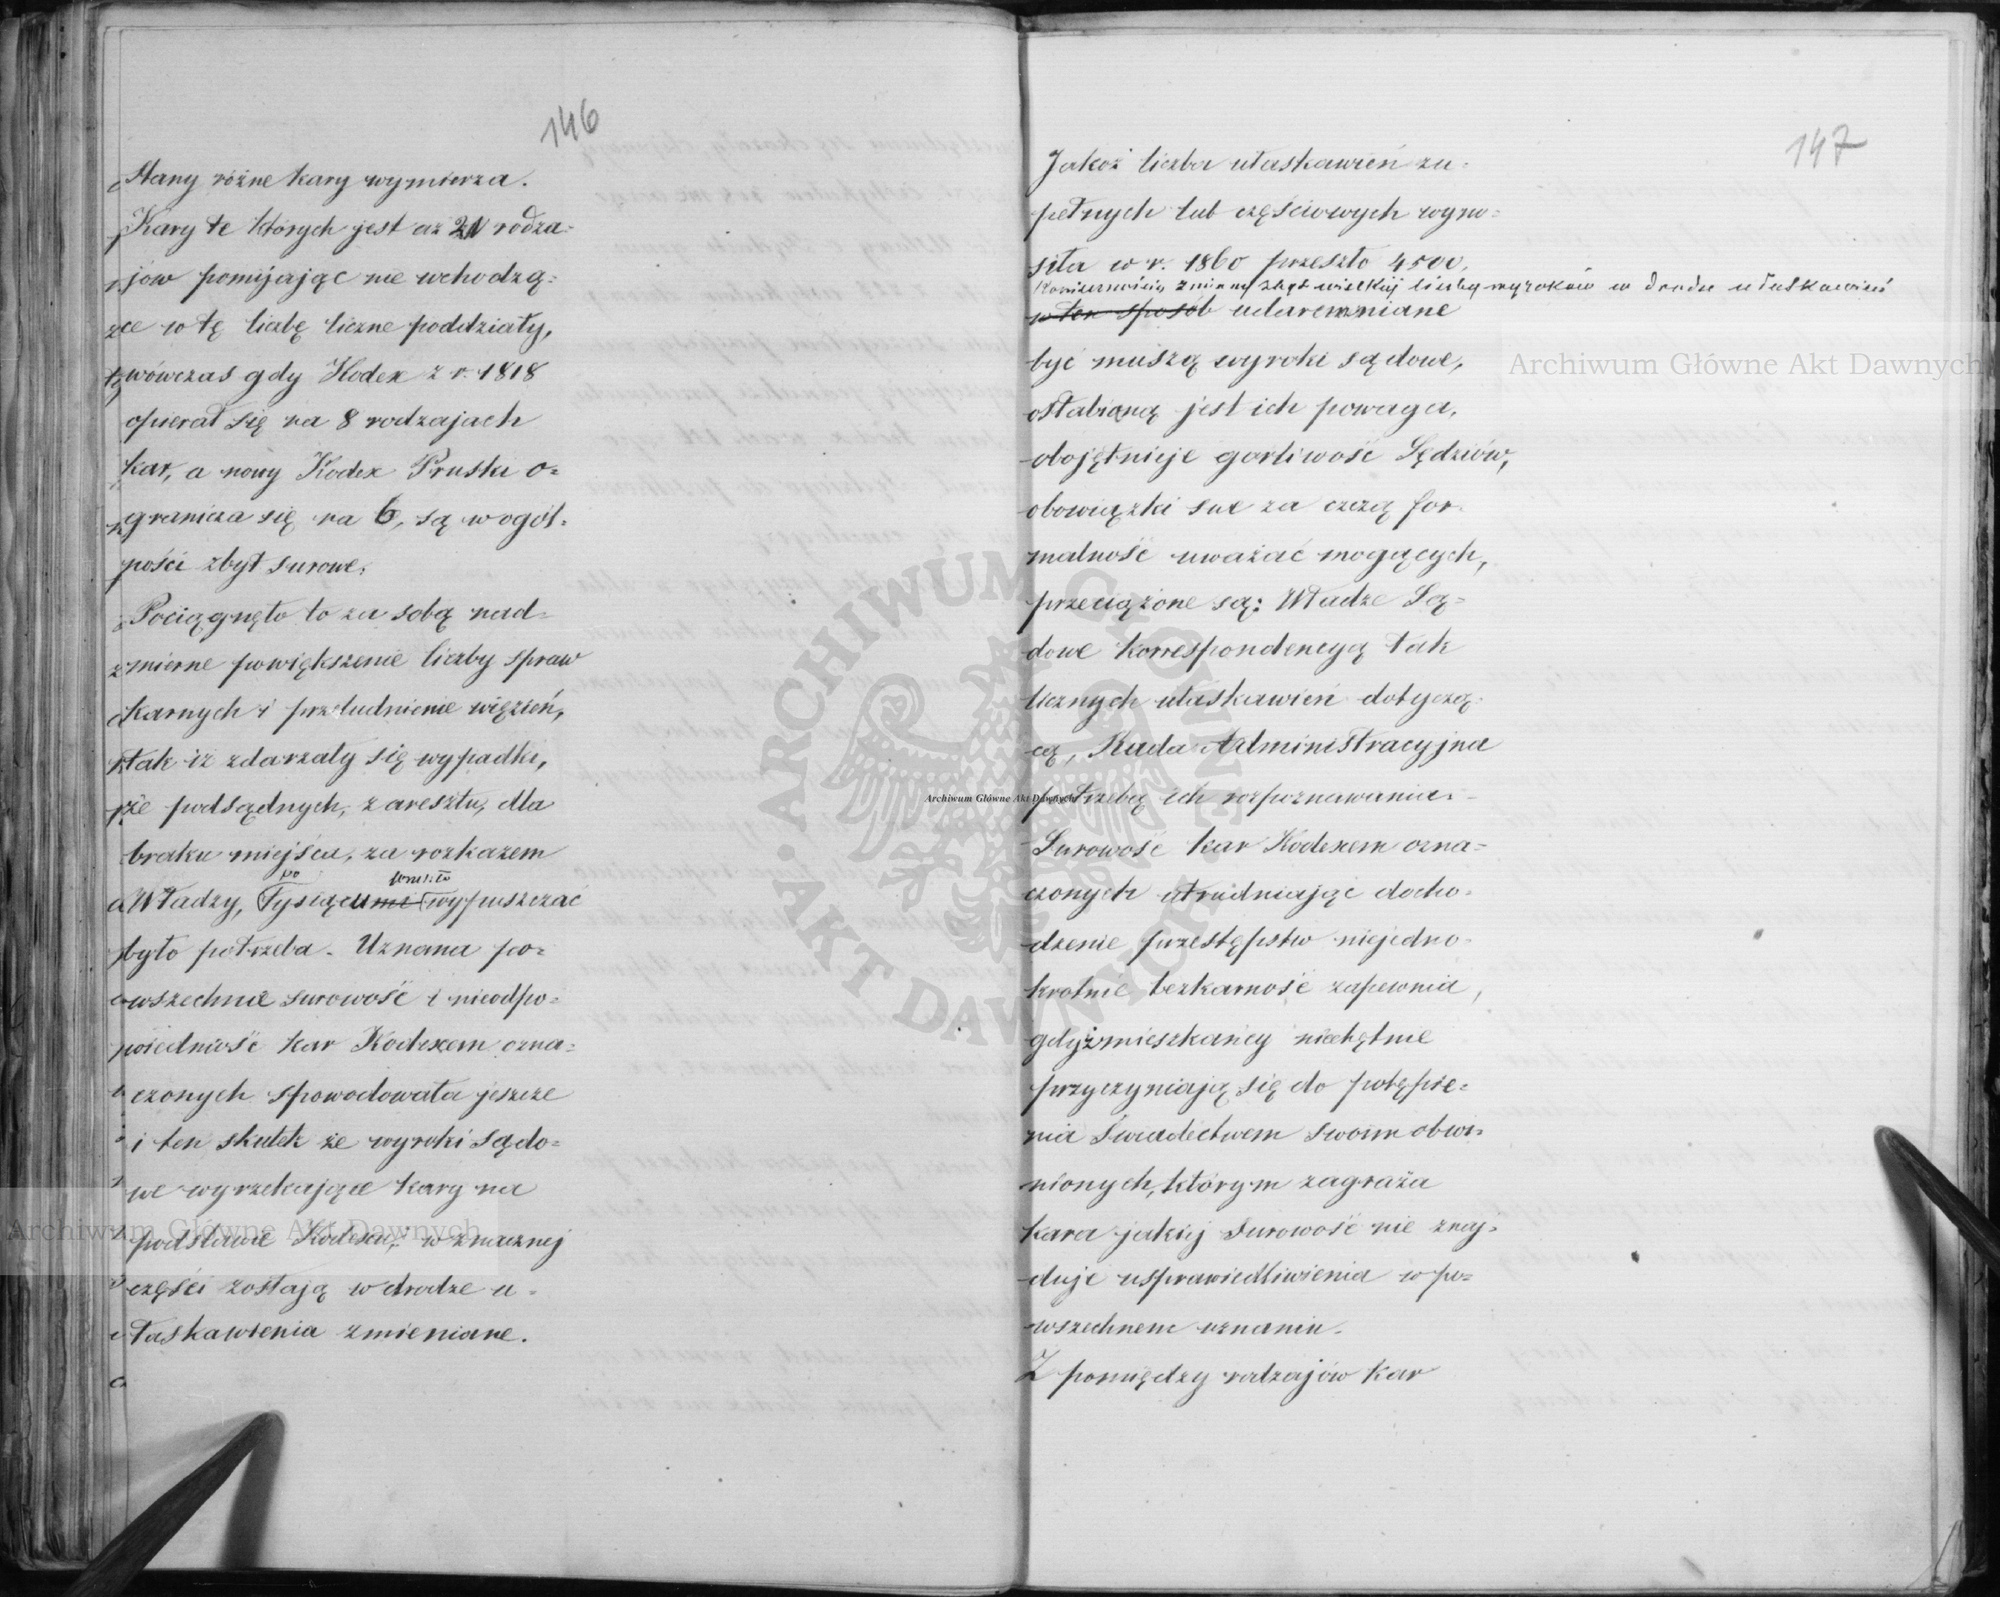 146
Stany różne kary wymierza.
Kary te których jest aż 21 rodza-
jów pomijając nie wchodzą-
ce w tę liczbę liczne poddziały,
wówczas gdy Kodex z r. 1818
opierał się na 8 rodzajach
kar, a nowy Kodex Pruski o-
granicza się na 6, są w ogól-
ności zbyt surowe.
Pociągnęło to za sobą nad-
mierne powiększenie liczby spraw
karnych i przeludnienie więzień,
tak iż zdarzały się wypadki,
że podsądnych, z aresztu, dla
braku miejsca, za rozkazem
Władzy, Tysiącami wypuszczać
było potrzeba. Uznana po-
wszechnie surowość i nieodpo-
wiedniość kar Kodexem ozna-
czonych spowodowała jeszcze
i ten skutek że wyroki sądo-
we wyrzekające kary na
podstawie Kodexu, w znacznej
części zostają w drodze u-
łaskawienia zmieniane.
147
Jakoż liczba ułaskawień zu-
pełnych lub częściowych wyno-
siła w r. 1860 przeszło 4500.
Koniecznością zmiany zbyt wielkiej liczby wyroków w drodze ułaskawień
w ten sposób udaremniane
być muszą wyroki sądowe,
osłabioną jest ich powaga,
obojętnieje gorliwość Sędziów,
obowiązki swe za czczą for-
malność uważać mogących,
przeciążone są: Władze Są-
dowe korrespondencyą tak
licznych ułaskawień dotyczą-
cą, Rada Administracyjna
potrzebą ich rozpoznawania.
Surowość kar Kodexem ozna-
czonych utrudniając docho-
dzenie przestępstw niejedno-
krotnie bezkarność zapewnia,
gdyż mieszkańcy niechętnie
przyczyniają się do potępie-
nia świadectwem swoim obwi-
nionych, którym zagraża
kara jakiej surowość nie znaj-
duje usprawiedliwienia w po-
wszechnem uznaniu.
Z pomiędzy rodzajów kar
Archiwum Główne Akt Dawnych
Archiwum Główne Akt Dawnych
Archiwum Główne Akt Dawnych
ARCHIWUM GŁÓWNE AKT DAWNYCH